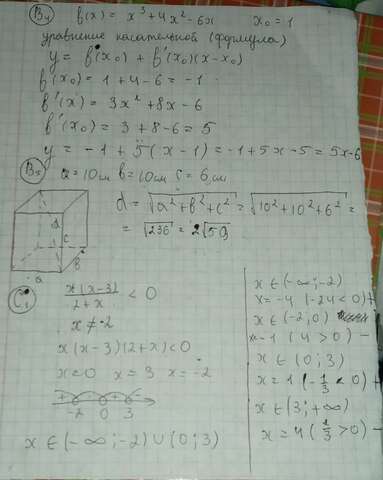 В4 f(x) = x³ + 4x² - 6x x₀ = 1
уравнение касательной (формула)
y = f(x₀) + f'(x₀)(x - x₀)
f(x₀) = 1 + 4 - 6 = -1
f'(x) = 3x² + 8x - 6
f'(x₀) = 3 + 8 - 6 = 5
y = -1 + 5(x - 1) = -1 + 5x - 5 = 5x - 6
В5 a = 10см b = 10см c = 6см
d = √a² + b² + c² = √10² + 10² + 6² =
= √236 = 2√59
d
c
b
a
C1 x(x-3)/2+x < 0
x ≠ -2
x(x-3)(2+x) < 0
x = 0 x = 3 x = -2
+ - + -
-2 0 3
x ∈ (-∞; -2) ∪ (0; 3)
x ∈ (-∞; -2)
x = -4 (-24 < 0) +
x ∈ (-2; 0)
x = -1 (4 > 0) -
x ∈ (0; 3)
x = 1 (-1/3 < 0) +
x ∈ (3; +∞)
x = 4 (2/3 > 0) -